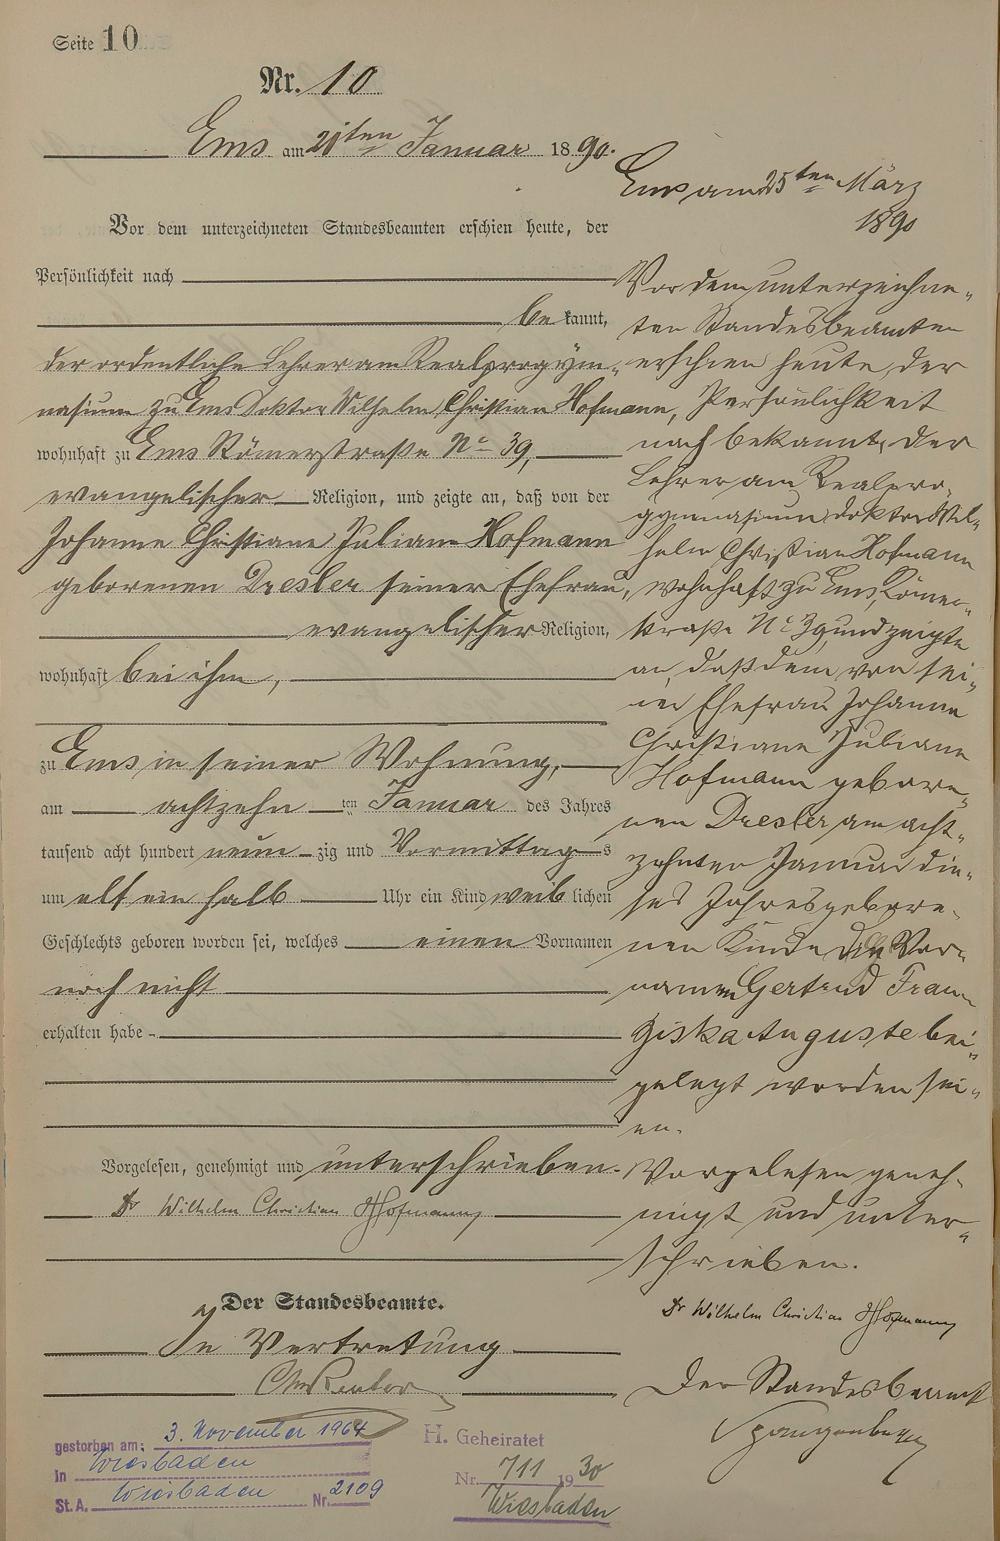 Seite 10
Nr. 10
Ems am 21ten Januar 1890.
Vor dem unterzeichneten Standesbeamten erschien heute, der
Persönlichkeit nach
bekannt,
der ordentliche Lehrer am Realprogym-
nasium zu Ems Doktor Wilhelm Christian Hofmann,
wohnhaft zu Ems Römerstraße No 39,
evangelischer Religion, und zeigte an, daß von der
Johanne Christiane Juliane Hofmann
geborenen Dresler seiner Ehefrau,
evangelischer Religion,
wohnhaft bei ihm,
zu Ems in seiner Wohnung,
am achtzehn ten Januar des Jahres
tausend acht hundert neunzig und Vormittags
um elf ein halb Uhr ein Kind weiblichen
Geschlechts geboren worden sei, welches einen Vornamen
noch nicht
erhalten habe
Vorgelesen, genehmigt und unterschrieben.
Dr Wilhelm Christian Hofmann
Der Standesbeamte.
In Vertretung
gestorben am: 3. November 1964
in Wiesbaden
St. A. Wiesbaden Nr. 2109
H. Geheiratet
Nr. 711 1930
Wiesbaden
Ems am 25ten März
1890
Vor dem unterzeichne-
ten Standesbeamten
erschien heute der
Persönlichkeit
nach bekannt, der
Lehrer am Realpro-
gymnasium Doktor Wil-
helm Christian Hofmann
wohnhaft zu Ems, Römer-
straße No 39, und zeigte
an, daß dem von sei-
ner Ehefrau Johanne
Christiane Juliane
Hofmann gebore-
nen Dresler am acht-
zehnten Januar die-
ses Jahres gebore-
nen Kinde die Vor-
namen Gertrud Fran-
ziska Auguste bei-
gelegt worden sei-
en.
Vorgelesen geneh-
migt und unter-
schrieben.
Dr Wilhelm Christian Hofmann
Der Standesbeamte
Spangenberg